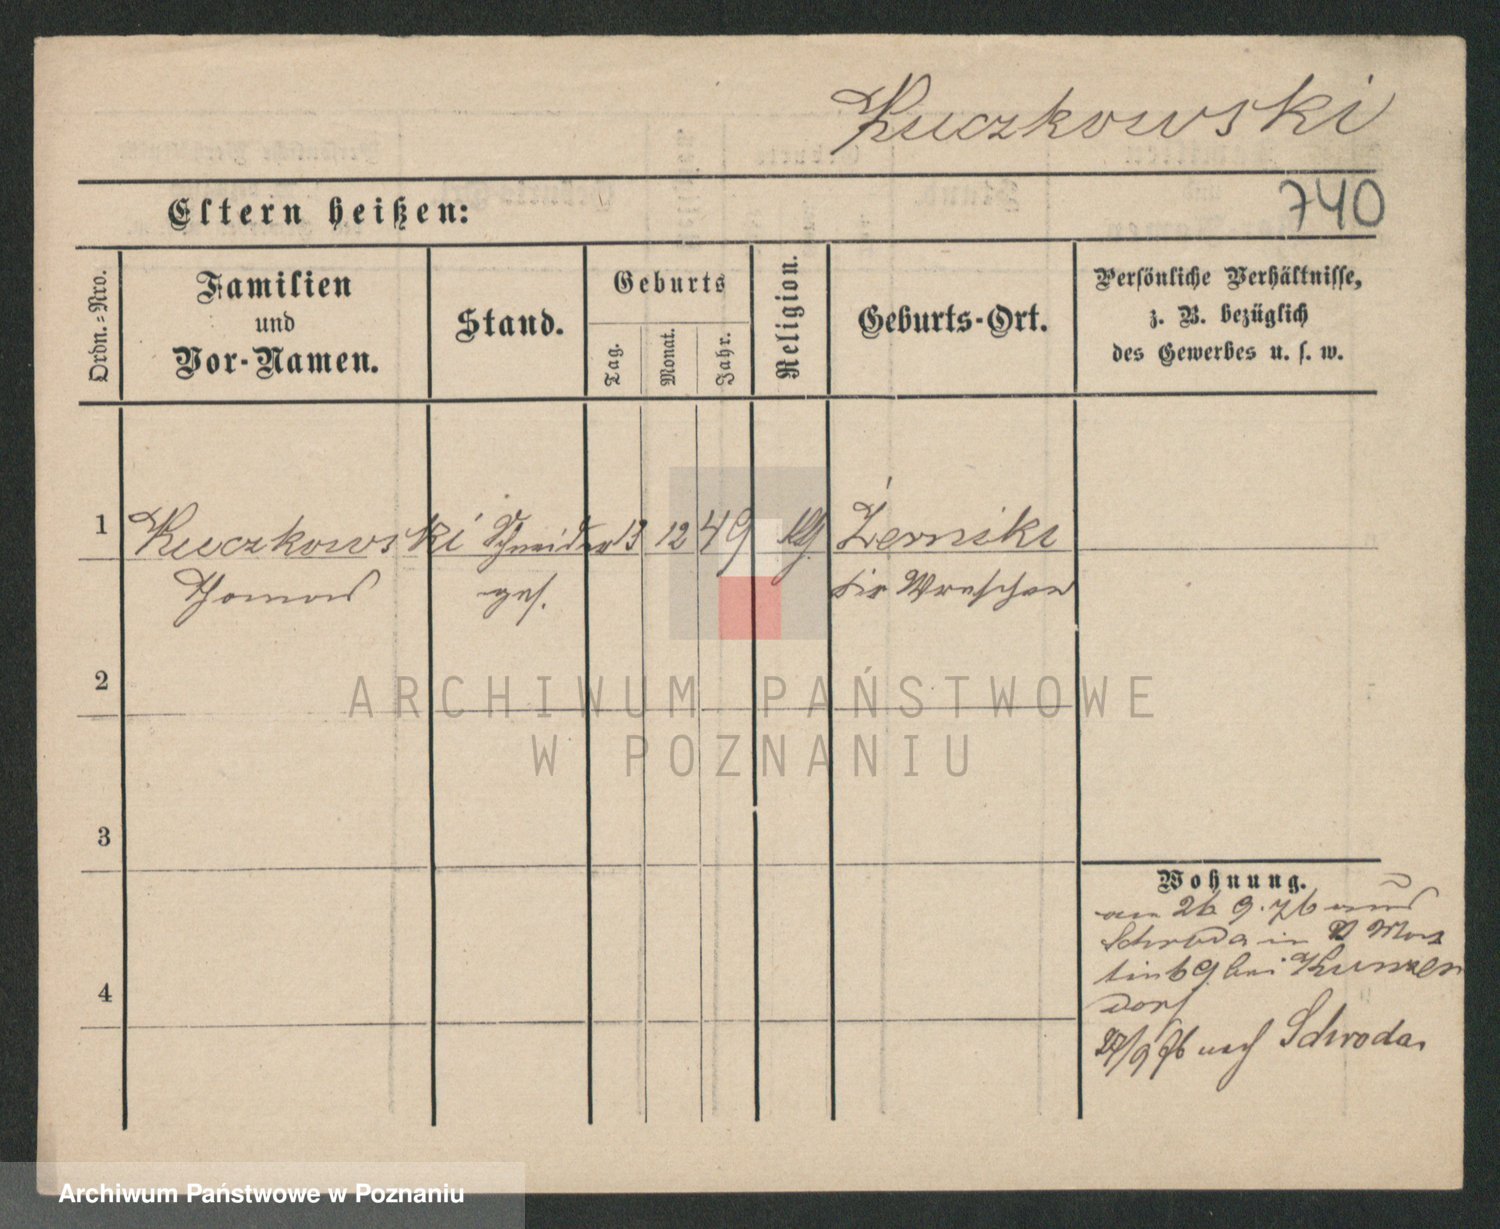 Kuczkowski
740
Eltern heißen:
Ordn.-Nro.
Familien
und
Vor-Namen.
Stand.
Geburts
Tag.
Monat.
Jahr.
Religion.
Geburts-Ort.
Persönliche Verhältnisse,
z. B. bezüglich
des Gewerbes u. s. w.
1 Kuczkowski Schneider 13 12 49 Zerniki
Thomas ges. Wreschen
2
ARCHIWUM PAŃSTWOWE
W POZNANIU
3
Wohnung.
am 26 9. 76 aus
Schroda in
69 bei
dorf
27/9 76 nach Schroda
4
Archiwum Państwowe w Poznaniu